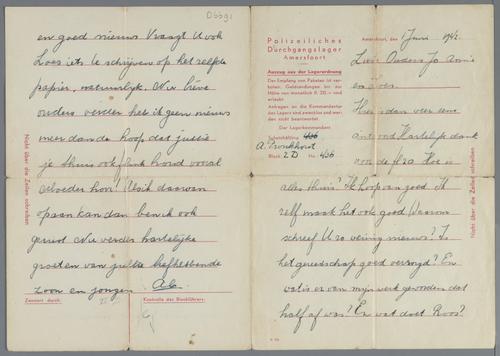 Polizeiliches
Durchgangslager
Amersfoort
Auszug aus der Lagerordnung
Der Empfang von Paketen ist ver-
boten. Geldsendungen bis zur
Höhe von monatlich R. 20.— sind
erlaubt
Anfragen an die Kommandantur
des Lagers sind zwecklos und wer-
den nicht beantwortet.
Der Lagerkommandant
Schutzhäftling 456
A. Bronkhorst
Block 2D No. 456
Amersfoort, den 1 Juni 1942
Lieve Ouders Jo Annie
en Loes.
Hier dan weer een
antwoord Hartelijk dank
voor de Hoe is
alles thuis? Ik hoop van goed. Ik
zelf maak het ook goed. Waarom
schreef U zo weinig nieuws? Is
het gereedschap goed verzorgd? En
wat is er van mijn werk geworden dat
half af was? En wat doet Roos?
Nicht über die Zeilen schreiben
0559i
en goed nieuws. Vraagt U ook
Loes iets te schrijven op het zelfde
papier, natuurlijk. Nu lieve
ouders verder heb ik geen nieuws
meer dan de hoop dat jullie
je thuis ook flink houd vooral
geloeder hoor! Als ik daarvan
opaan kan dan ben ik ook
gerust Nu verder hartelijke
groeten van jullie liefhebbende
zoon en jongen Ab.
Zensiert durch:
Kontrolle des Blockführers:
Nicht über die Zeilen schreiben